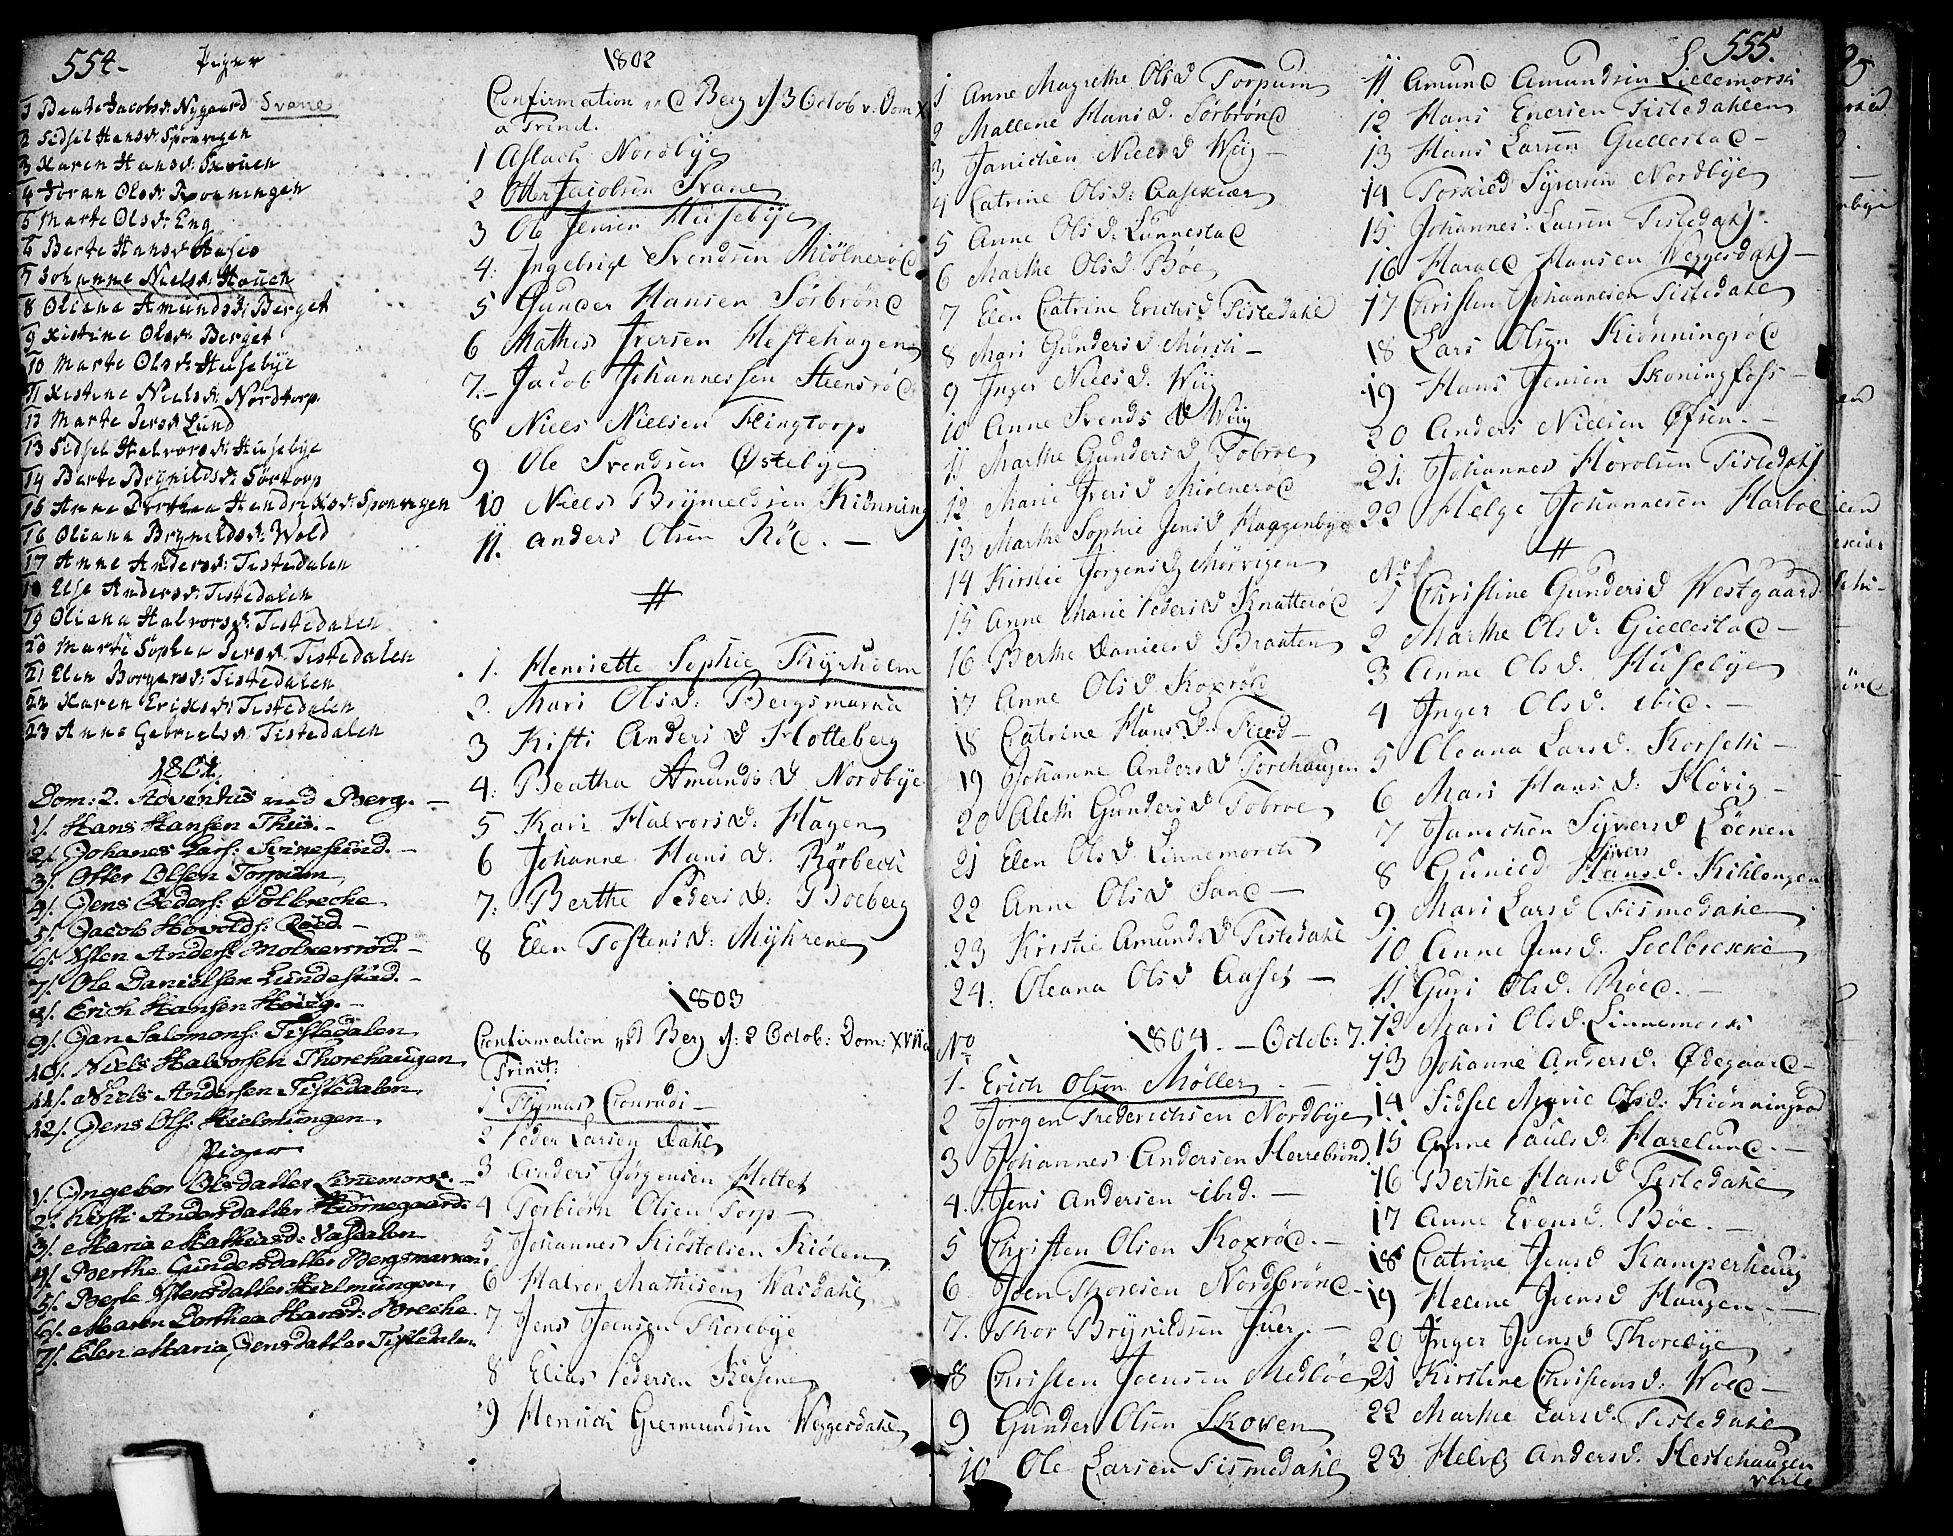 554.
Piger
1 Beate Jacobsd. Nygaard Svane
2 Sidsel Hansd: Sponvigen
3 Karen Hansd:
4 Joran Olsd:
5 Marte Olsd: Eng
6 Berte Hansd:
7 Johanne Nielsd: Houch
8 Oliana Amundsd: Berget
9 Kistine Olsd: Berget
10 Marte Olsd: Husebye
11 Kistine Nielsd: Nordtorp
12 Marte Persd Lund
13 Sidsel Halvorsd: Husebye
14 Berte Brynildsd: Sörtorp
15 Anne Dorthea Hendrixsd: Sponvigen
16 Oliana Brynildsd: Wold
17 Anne Andersd: Tistedalen
18 Else Andersd: Tistedalen
19 Oliana Halvorsd: Tistedalen
20 Marte Sophia Persd: Tistedalen
21 Elen Borgersd: Tistedalen
22 Karen Eriksd: Tistedalen
23 Anna Gabrielsd: Tistedalen
1801.
Dom: 2. Adventus ved Berg. -
1/. Hans Hansen Thiis. -
2/. Johanes Lars: Svinesund. -
3/. Otter Olsen Torpum
4/. Jens Peders: Solbreche
5/. Jacob Hovolds: Röed. -
6/. Ysten Anders: Molnerröd -
7/. Ole Danielsen Lundestad. -
8/. Erich Hansen Höwig. -
9/. Jan Salomons: Tistedalen
10/. Niels Halvorsen Thorehaugen
11/. Niels Andersen Tistedalen
12/. Jens Ols: Hielmungen
Piger
1/. Ingebor Olsdatter Linnemorse. -
2/. Kirsti Andersdatter Hiörnegaard.
3/. Maria Mathiasd: Vasdalen
4/. Berthe Gundersdatter Bergsmarken
5/. Berte Ystensdatter Hielmungen
6/. Maren Dorthea Hansd: Breche
7/. Elen Maria Jensdatter Tistedalen
1802
Confirmation ved Berg d/3 Octob v. Dom X
a Trind.
1 Aslach Nordbye
2 Otter Jacobsen Svane
3 Ole Jensen Husebye
4. Ingebrigt Svendsen Miölneröd
5 Gunder Hansen Sörbrönd
6 Mathis Iversen Hestehagen
7. Jacob Johannessen Steensröd
8 Niels Nielsen Flingtorp
9 Ole Svendsen Östebye
10 Niels Brynildsen Kiönning
11. Anders Olsen Röd. -
#
1. Henriette Sophie Thyrholm
2. Mari Olsd: Bergsmarna
3 Kisti Anders D Holteberg
4. Beatha Amunds D Nordbye
5 Kari Halvorsd: Hagen
6 Johanne Hans d. Rörbech
7: Berthe Pedersd: Boeberg
8 Elen Tostensd: Myhrene
1803
Confirmation ved Berg d: 2 Octob: Dom: XVII a
Trinit:
1 Thomas Conradi -
2 Peder Larsen Dahl
3 Anders Jörgensen Holtet
4 Torbiörn Olsen Torp -
5 Johannes Kiöstolsen Kiölen
6 Halvor Mathisen Wasdahl
7 Jens Joensen Thorebye
8 Elias Pedersen
9 Henrich Giermundsen Weggesdahl
555.
1 Anne Magrethe Olsd Torpum
2 Mallene Hans d. Sörbrönd
3 Janichen Niels d Wiig -
4 Catrine Olsd: Aasekiær
5 Anne Olsd: Lunnestad
6 Marthe Olsd: Böe
7 Elen Catrine Erichsd Tistedahl
8 Mari Gundersd Mörch -
9 Inger Nielsd. Wiig
10 Anne Svends d Wiig
11 Marthe Gundersd Tobroe
12 Marie Iversd Miölneröd
13 Marthe Sophie Jensd Haggenbye
14 Kirstie Jörgensd Mörvigen
15 Anne Marie Pedersd Knatteröd
16 Berthe Danielsd Braaten
17 Anne Olsd Koxröd
18 Catrine Hansd. Tied -
19 Johanne Andersd Torehaugen
20 Aleth Gundersd Tobroe
21 Elen Olsd Linnemorch
22 Anne Olsd Sand -
23 Kirstie Amundsd Tistedahl
24. Oleana Olsd Aaset -
No 1804. - Octob: 7.
1. Erich Olsen Möller -
2 Jörgen Frederichsen Nordbye
3 Johannes Andersen Herrebrönd
4. Jens Andersen ibid. -
5 Christen Olsen Koxröd. -
6. Joen Thoresen Nordbrönd -
7. Thor Brynildsen Juer. -
8 Christen Joensen Medböe
9 Gunder Olsen Skoven
10 Ole Larsen Tismedahl
11 Amund Amundsen Lillemorsk
12 Hans Enersen Tistedahlen
13 Hans Larsen Gillestad -
14 Torkild Syversen Nordbye
15 Johannes Larsen Tistedahl.
16 Harald Hansen Weggesdahl -
17 Christen Johannesen Tistedahl
18 Lars Olsen Kiönningröd
19 Hans Jensen Skoningfoss -
20 Anders Nielsen Öfsen. -
21. Johannes Horolsen Tistedahl
22 Helge Johannesen Harboe
#
No
1 Christine Gundersd Westgaard
2 Marthe Olsd: Giellestad -
3 Anne Olsd. Husebye
4 Inger Olsd. ibid. -
5 Oleana Larsd. Korseth -
6 Mari Hansd: Hövig -
7 Janichen Syversd Löenen
Syvers
8 Gunild Hansd. Kihlengen
9. Mari Larsd Tismedahl
10 Anne Jensd. Soelbrekke
11 Guri Olsd. Röed. -
12 Mari Olsd. Linnemorsk
13 Johanne Andersd. Ödegaard -
14 Sidsel Marie Olsd: Kiönningröd
15 Anne Paulsd: Harelund. -
16 Berthe Hansd Tistedahl
17 Anne Evensd. Böe. -
18 Catrine Jensd Kamperhaug
19 Helene Jensd Haugen -
20 Inger Jensd Thorebye
21 Kirstine Christensd: Woed -
22 Marthe Larsd. Tistedahl
23 Helvig Andersd. Hestehaugen
verte